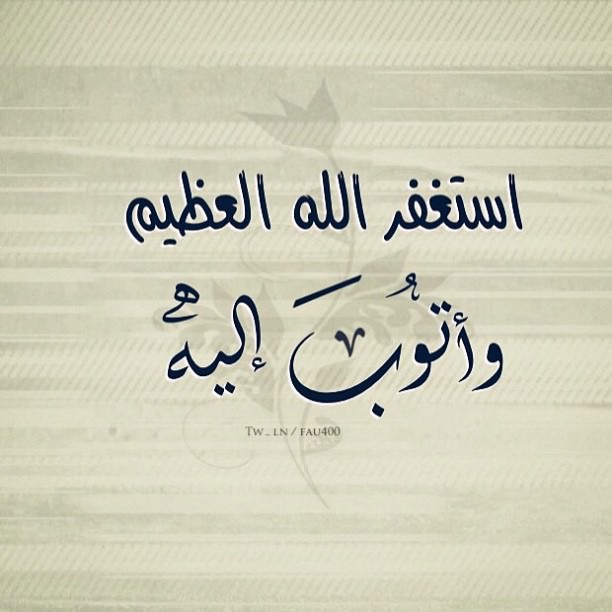 استغفر الله العظيم
وأتوُبَ إليه
Tw_ln / fau400